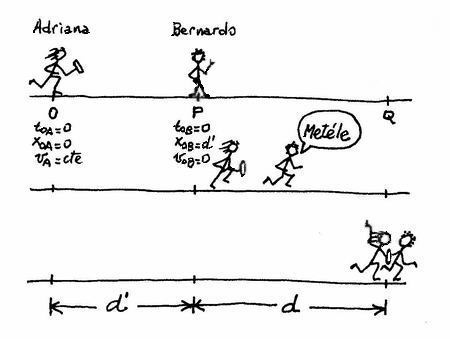 Adriana
Bernardo
O
P
Q
t₀A=0
x₀A=0
vA=cte
t₀B=0
x₀B=d'
v₀B=0
Metéle
d'
d